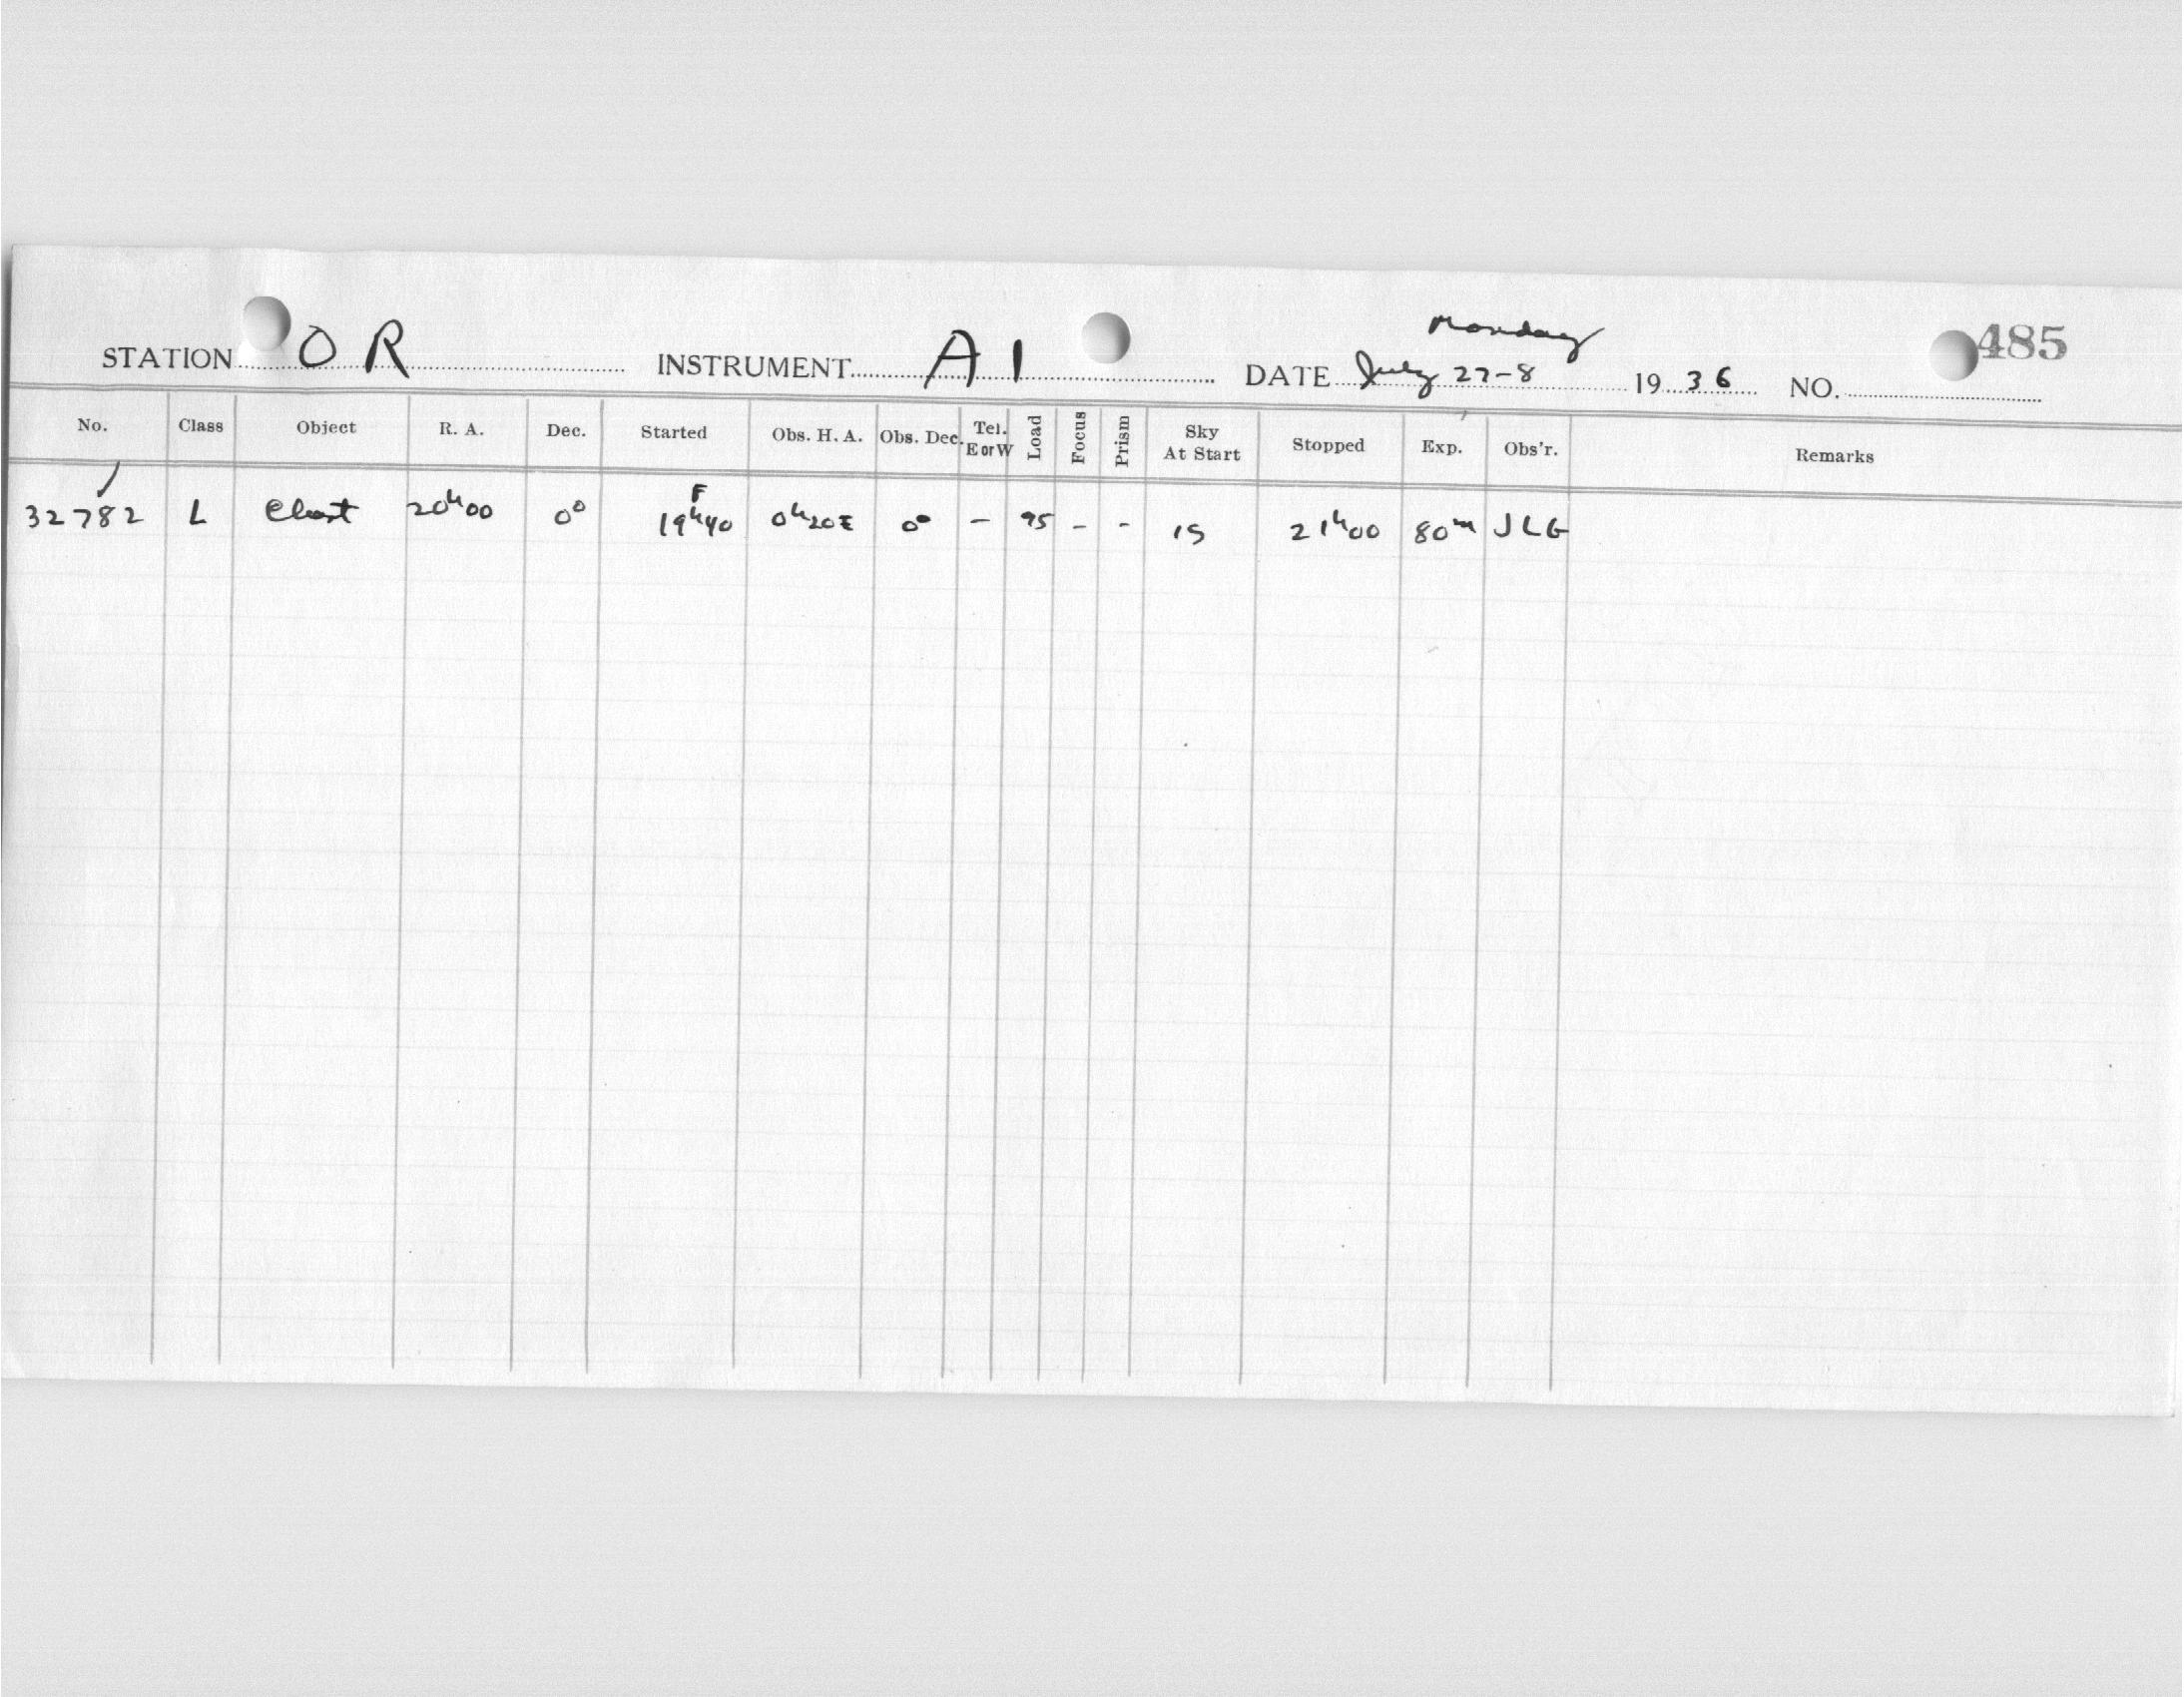 STATION O R INSTRUMENT A 1 DATE Monday July 27-8 19 36 NO. 485
No. Class Object R. A. Dec. Started Obs. H. A. Obs. Dec. Tel. E or W Load Focus Prism Sky At Start Stopped Exp. Obs'r. Remarks
32782 L Chart 20h00 0° F 19h40 0h20E 0° - 95 - - 1S 21h00 80m JLG